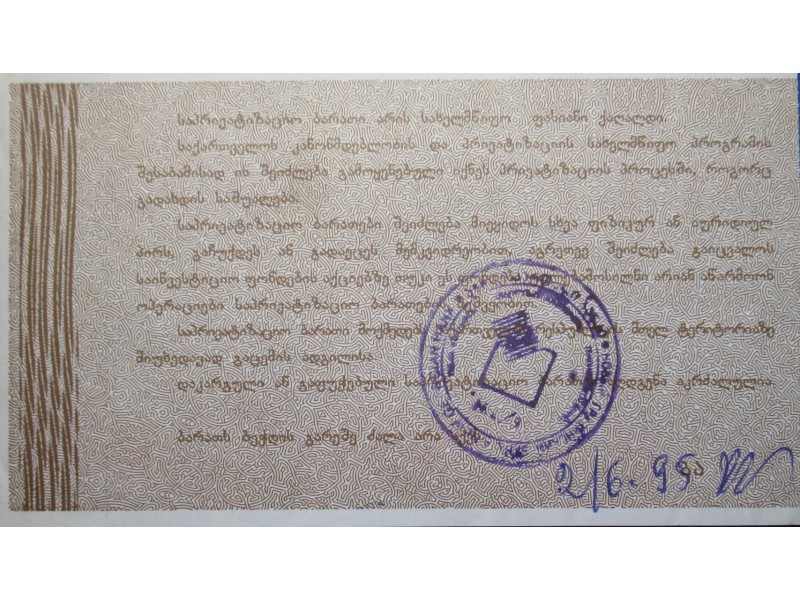 საპრივატიზაციო ბარათი არის სახელმწიფო ფასიანი ქაღალდი.
საქართველოს კანონმდებლობის და პრივატიზაციის სახელმწიფო პროგრამის
შესაბამისად ის შეიძლება გამოყენებული იქნეს პრივატიზაციის პროცესში, როგორც
გადახდის საშუალება.
საპრივატიზაციო ბარათები შეიძლება მიეყიდოს სხვა ფიზიკურ ან იურიდიულ
პირს, გაჩუქდეს ან გადაეცეს მემკვიდრეობით, აგრეთვე შეიძლება გაიცვალოს
საინვესტიციო ფონდების აქციებზე თუკი ეს ფონდები უფლებამოსილნი არიან აწარმოონ
ოპერაციები საპრივატიზაციო ბარათების მეშვეობით.
საპრივატიზაციო ბარათი მოქმედებს საქართველოს რესპუბლიკის მთელ ტერიტორიაზე
მიუხედავად გაცემის ადგილისა.
დაკარგული ან გაფუჭებული საპრივატიზაციო ბარათის აღდგენა აკრძალულია.
ბარათს ბეჭდის გარეშე ძალა არა აქვს.
2/6-95